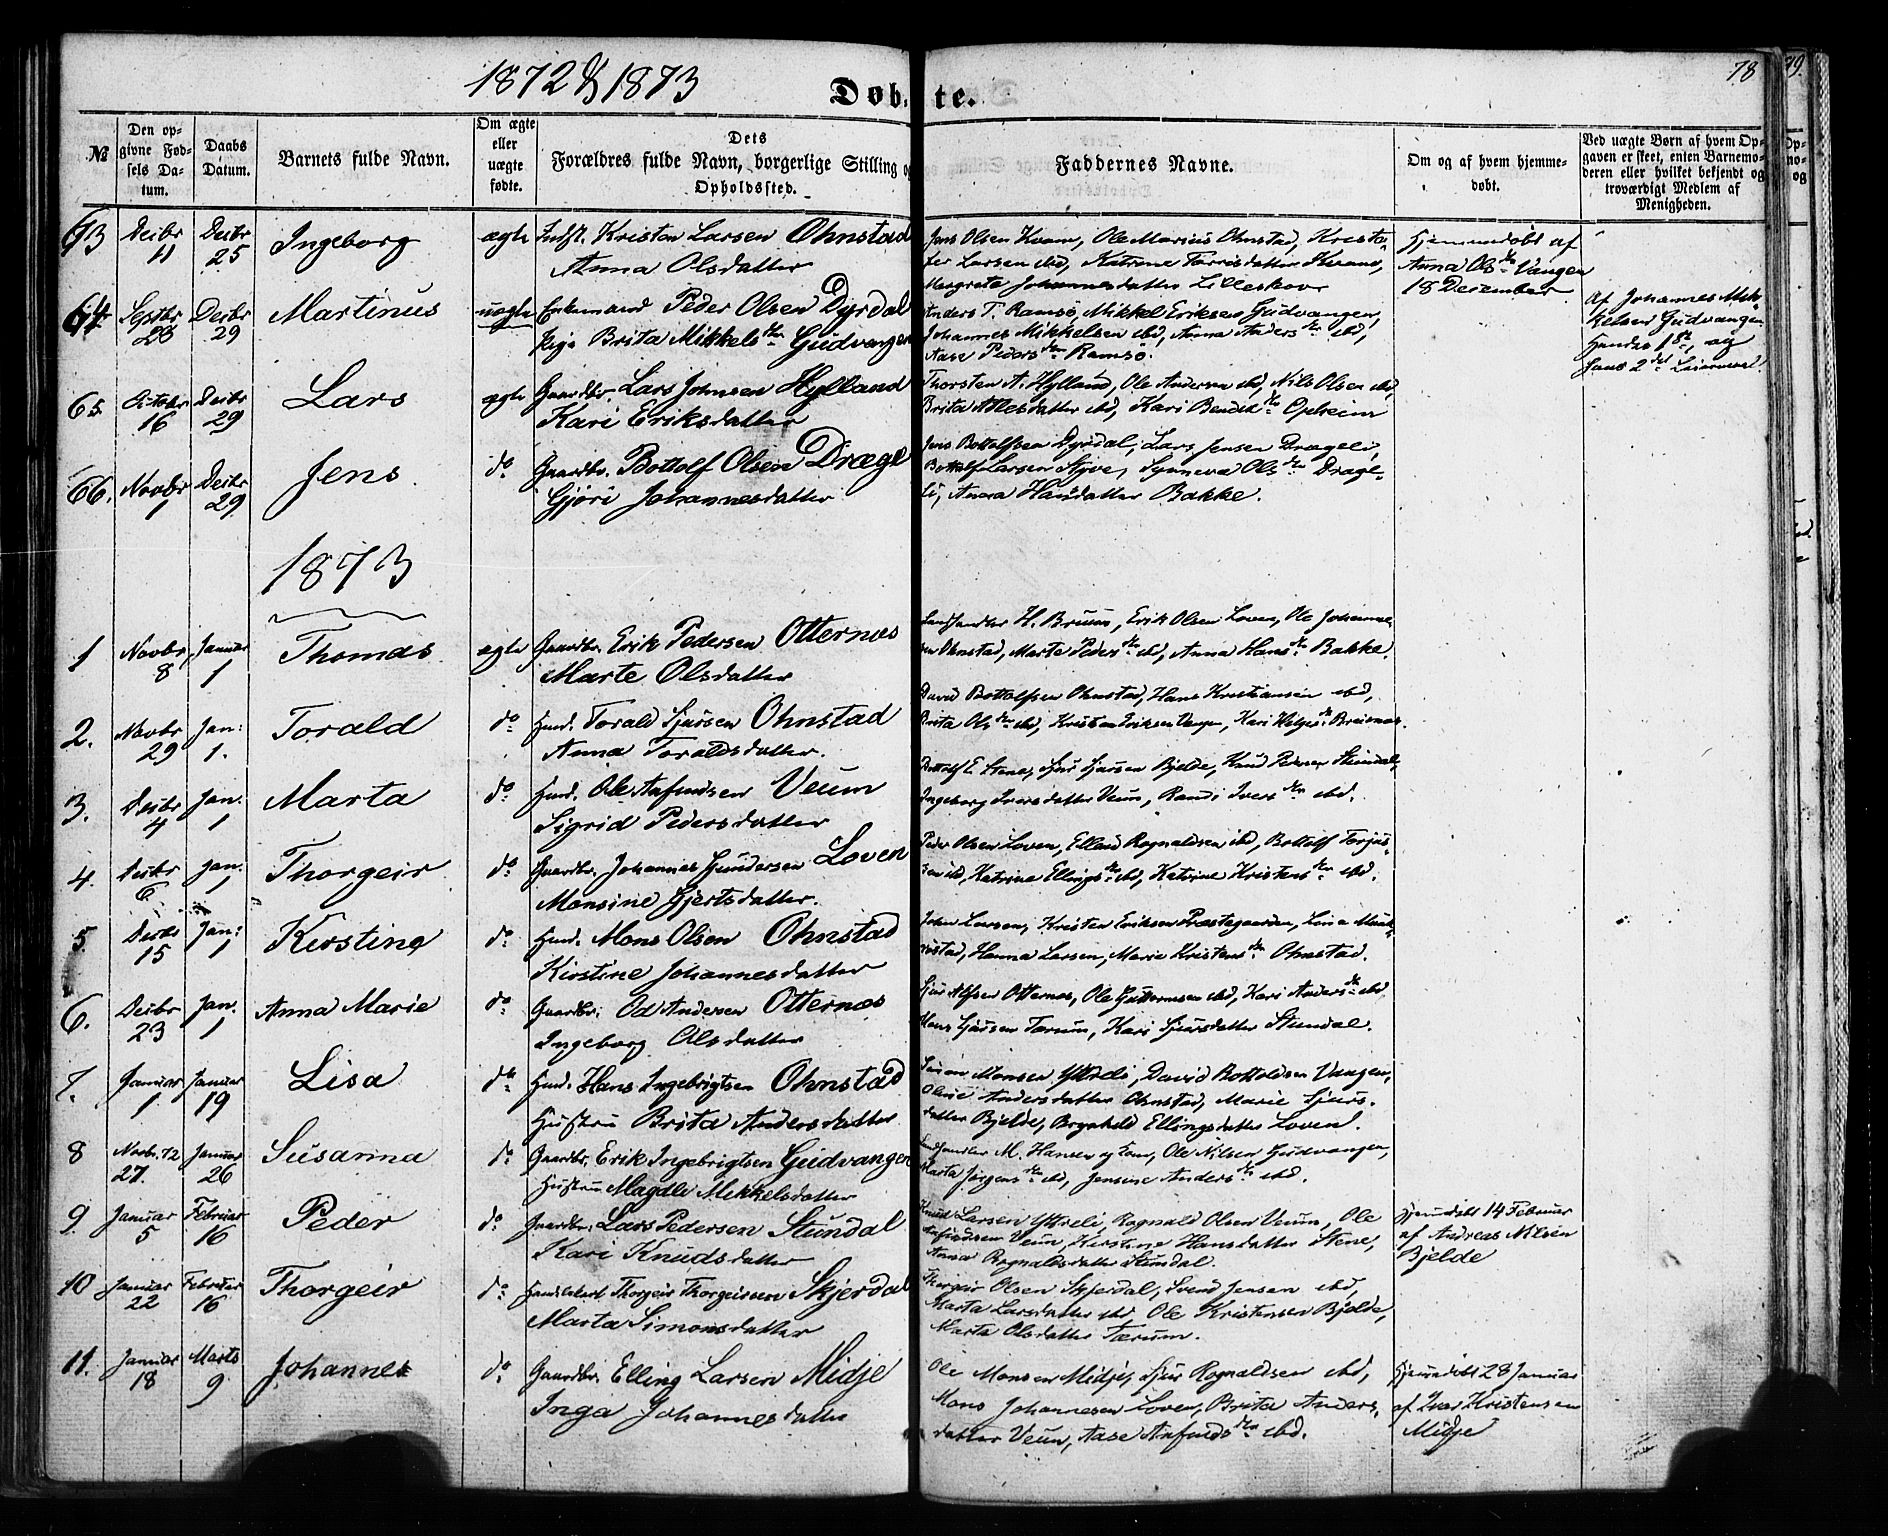 1872 & 1873
Døbte.
78
79.
№
Den opgivne Fødsels Datum.
Daabs Datum.
Barnets fulde Navn.
Om ægte eller uægte fødte.
Dets Forældres fulde Navn, borgerlige Stilling og Opholdssted.
Faddernes Navne.
Om og af hvem hjemmedøbt.
Ved uægte Børn af hvem Opgaven er skeet, enten Barnemoderen eller hvilket bekjendt og troværdigt Medlem af Menigheden.
63 Decbr 11 Decbr 25 Ingeborg ægte Indst. Kristen Larsen Ohnstad
Anna Olsdatter
Jens Olsen Kvam, Ole Marius Ohnstad, Kristofer Larsen ibd, Katrine Torrisdatter Kvam,
Margrete Johannesdatter Lilleskov
Hjemmedøbt af
Anna Olsdtr Vangen
18 December
64 Septbr 28 Decbr 29 Martinus uægte Enkemand Peder Olsen Dyrdal
Pige Brita Mikkelsdtr Gudvangen
Anders T. Ramsø, Mikkel Eriksen Gudvangen,
Johannes Mikkelsen ibd, Anna Andersdtr ibd,
Aase Pedersdtr Ramsø.
Af Johannes Mikkelsen Gudvangen
Hendes 1ste, og
hans 2det Leiermaal
65 Octobr 16 Decbr 29 Lars ægte Gaardbr. Lars Johnsen Hylland
Kari Eriksdatter
Thorsten A. Hylland, Ole Andersen ibd, Nils Olsen ibd,
Brita Atlesdatter ibd, Kari Bendikdtr Opheim
66. Novbr 1 Decbr 29. Jens do Gaardbr. Bottolf Olsen Drægeli
Gjøri Johannesdatter
Jens Bottolfsen Dyrdal, Lars Jensen Drægeli,
Bottolf Larsen Styve, Synneva Olsdtr Drægeli, Anna Hansdatter Bakke.
1873
1 Novbr, 8 Januar 1 Thomas ægte Gaardbr. Erik Pedersen Otternæs
Marte Olsdatter
Landhandler H. Bruun, Erik Olsen Loven, Ole Johannesen Ohnstad, Marte Pedersdtr ibd, Anna Hansdtr Bakke.
2. Novbr 29 Jan: 1. Torald do Husd. Torald Sjursen Ohnstad
Anna Toraldsdatter.
David Bottolfsen Ohnstad, Hans Kristiansen ibd,
Brita Olsdtr ibd, Kristen Eriksen Vangen, Kari Helgesdtr Breisnæs.
3. Decbr 4 Jan. 1 Marta do Husd. Ole Anfindsen Veum
Sigrid Pedersdatter
Bottolf E. Stene, Sjur Sjursen Bjelde, Knud Pedersen Stundal,
Ingeborg Iversdatter Veum, Randi Iversdtr ibd.
4. Decbr 6 Jan. 1 Thorgeir do Gaardbr. Johannes Gundersen Loven
Monsine Gjertsdatter.
Peder Olsen Loven, Ellend Rognaldsen ibd, Bottolf Torjussen ibd, Katrine Ellingsdtr ibd, Katrine Kristensdtr ibd.
5 Decbr 15 Jan: 1 Kirstine do Husd. Mons Olsen Ohnstad
Kirstine Johannesdatter
John Larsen, Kristen Eriksen Prestegaarden, Hanna Larsen, Marie Kristensdtr Ohnstad.
6. Decbr 23 Jan. 1 Anna Marie do Gaardbr. Od Andersen Otternæs
Ingeborg Olsdatter
Sjur Alfsen Otternæs, Ole Guttormsen ibd, Kari Andersdtr ibd
Mons Sjursen Tærum, Kari Sjursdatter Stundal.
7. Januar 1. Januar 19 Lisa do Husd. Hans Ingebrigtsen Ohnstad
Hustru Brita Andersdatter
Simon Monsen Ytreli, David Bottolfsen Vangen,
Olive Andersdatter Ohnstad, Marie Sjursdatter Bjelde, Brynhild Ellingsdatter Loven.
8 Novbr. 72 27. Januar 26 Susanna do Gaardbr. Erik Ingebrigtsen Gudvangen
Hustru Magdli Mikkelsdatter
Landhandler M. Hansen og Kone, Ole Nilsen Gudvangen,
Marta Jørgensdtr ibd, Jensine Andersdtr ibd.
9. Januar 5 Februar 16 Peder do Gaardbr. Lars Pedersen Stundal
Kari Knudsdatter
Knud Larsen Ytreli, Rognald Olsen Veum, Ole
Anfindsen Veum, Kirstine Hansdatter Stene,
Anna Rognaldsdatter Stundal.
Hjemmedøbt 14 Februar
af Andreas Nilsen
Bjelde
10 Januar 22 Februar 16 Thorgeir do Thorgeir Thorgeirsen Skjerdal
Marta Simonsdatter
Thorgeir Olsen Skjerdal, Svend Jensen ibd,
Marta Larsdatter ibd Ole Kristensen Bjelde,
Marta Olsdatter Tærum.
11. Januar 18 Marts 9 Johannes do Gaardbr. Elling Larsen Midje
Inga Johannesdatter
Ole Monsen Midje, Sjur Rognaldsen ibd,
Mons Johannesen Loven, Brita Andersdatter Veum, Aase Anfindsdtr ibd.
Hjemmedøbt 28 Januar
af Ivar Kristensen
Midje